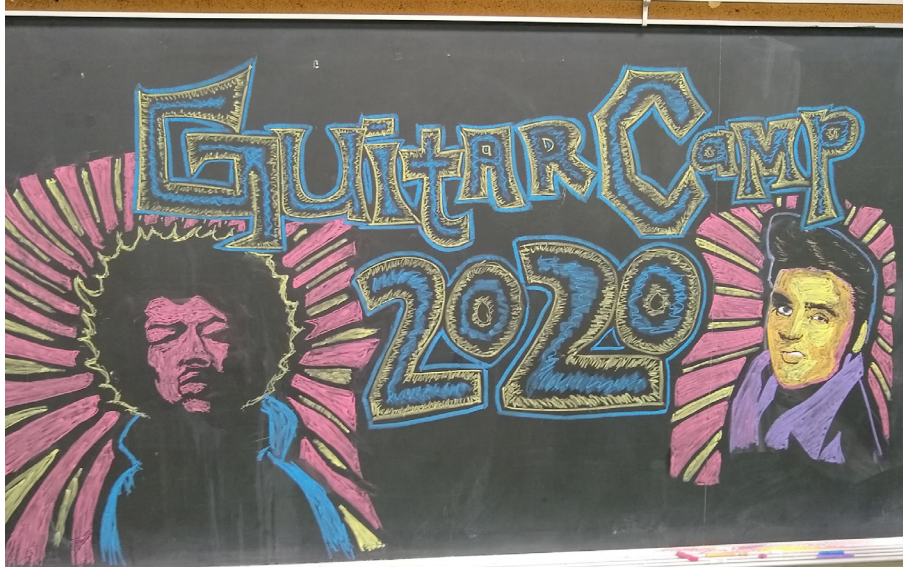 GuitAR CaMP
2020